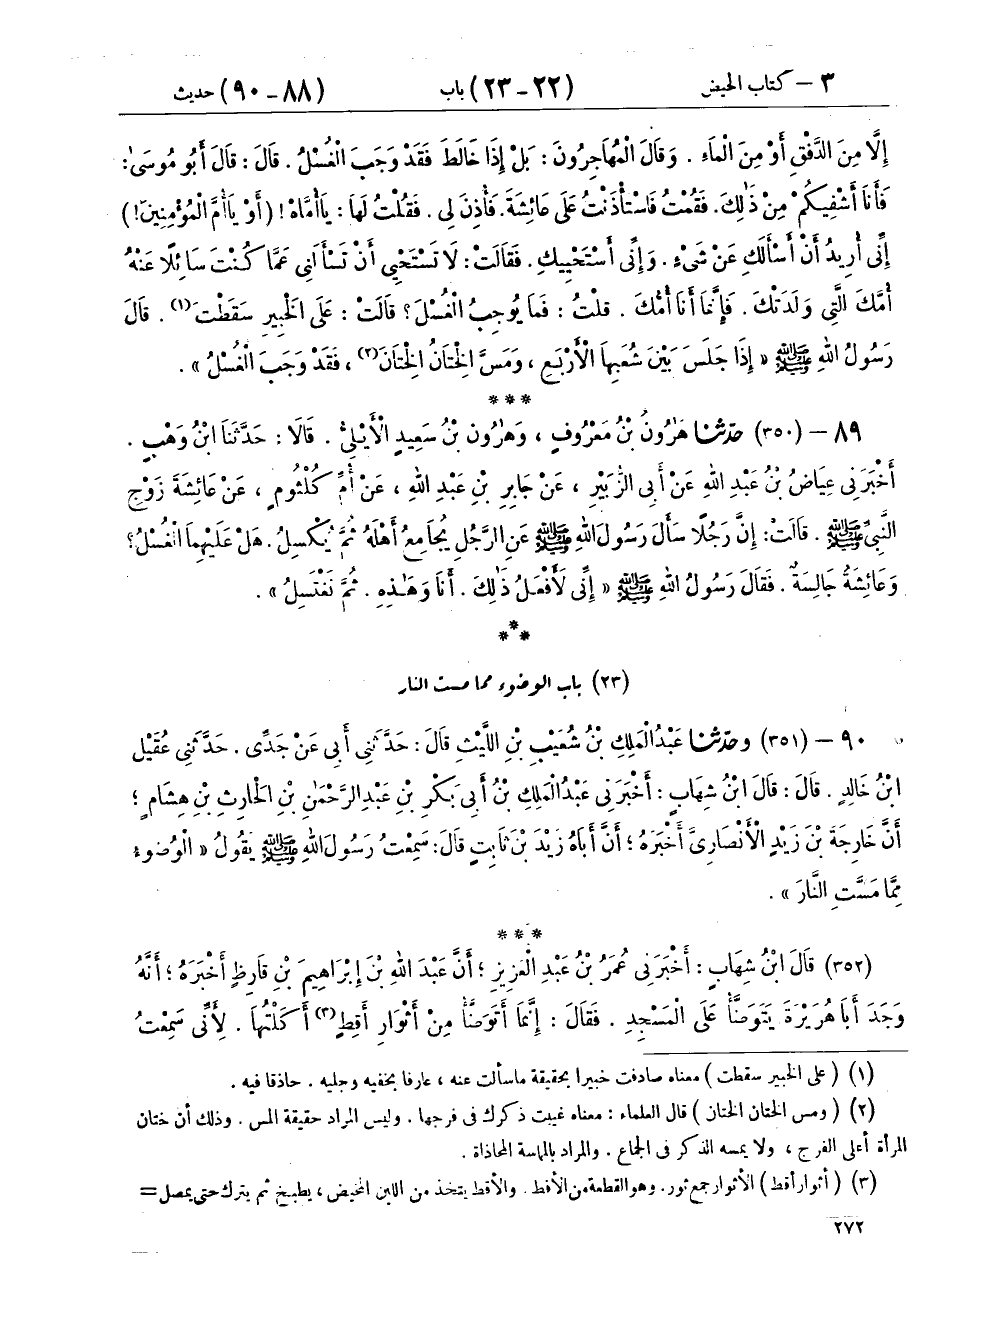 ٣ – كتاب الحيض (٢٢ – ٢٣) باب (٨٨ – ٩٠) حديث
إِلَّا مِنَ الدَّفْقِ أَوْ مِنَ الْمَاءِ . وَقَالَ الْمُهَاجِرُونَ : بَلْ إِذَا خَالَطَ فَقَدْ وَجَبَ الْغُسْلُ . قَالَ : قَالَ أَبُو مُوسَىٰ :
فَأَنَا أَشْفِيكُمْ مِنْ ذَٰلِكَ . فَقُمْتُ فَاسْتَأْذَنْتُ عَلَى عَائِشَةَ . فَأُذِنَ لِي . فَقُلْتُ لَهَا : يَا أُمَّاهْ ! ( أَوْ يَا أُمَّ الْمُؤْمِنِينَ ! )
إِنِّي أُرِيدُ أَنْ أَسْأَلَكِ عَنْ شَيْءٍ . وَإِنِّي أَسْتَحْيِيكِ . فَقَالَتْ : لَا تَسْتَحْيِي أَنْ تَسْأَلَنِي عَمَّا كُنْتَ سَائِلًا عَنْهُ
أُمَّكَ الَّتِي وَلَدَتْكَ . فَإِنَّمَا أَنَا أُمُّكَ . قُلْتُ : فَمَا يُوجِبُ الْغُسْلَ ؟ قَالَتْ : عَلَى الْخَبِيرِ سَقَطْتَ (١) . قَالَ
رَسُولُ اللهِ ﷺ « إِذَا جَلَسَ بَيْنَ شُعَبِهَا الْأَرْبَعِ ، وَمَسَّ الْخِتَانُ الْخِتَانَ (٢) ، فَقَدْ وَجَبَ الْغُسْلُ » .
***
٨٩ – (٣٥٠) حدّثنا هَارُونُ بْنُ مَعْرُوفٍ ، وَهَارُونُ بْنُ سَعِيدٍ الْأَيْلِيُّ . قَالَا : حَدَّثَنَا ابْنُ وَهْبٍ .
أَخْبَرَنِي عِيَاضُ بْنُ عَبْدِ اللهِ عَنْ أَبِي الزُّبَيْرِ ، عَنْ جَابِرِ بْنِ عَبْدِ اللهِ ، عَنْ أُمِّ كُلْثُومٍ ، عَنْ عَائِشَةَ زَوْجِ
النَّبِيِّ ﷺ . قَالَتْ : إِنَّ رَجُلًا سَأَلَ رَسُولَ اللهِ ﷺ عَنِ الرَّجُلِ يُجَامِعُ أَهْلَهُ ثُمَّ يُكْسِلُ . هَلْ عَلَيْهِمَا الْغُسْلُ ؟
وَعَائِشَةُ جَالِسَةٌ . فَقَالَ رَسُولُ اللهِ ﷺ « إِنِّي لَأَفْعَلُ ذَٰلِكَ . أَنَا وَهَٰذِهِ . ثُمَّ نَغْتَسِلُ » .
***
(٢٣) باب الوضوء مما مست النار
٩٠ – (٣٥١) وحدّثنا عَبْدُ الْمَلِكِ بْنُ شُعَيْبِ بْنِ اللَّيْثِ قَالَ : حَدَّثَنِي أَبِي عَنْ جَدِّي . حَدَّثَنِي عُقَيْلُ
ابْنُ خَالِدٍ . قَالَ : قَالَ ابْنُ شِهَابٍ : أَخْبَرَنِي عَبْدُ الْمَلِكِ بْنُ أَبِي بَكْرِ بْنِ عَبْدِ الرَّحْمَٰنِ بْنِ الْحَارِثِ بْنِ هِشَامٍ ؛
أَنَّ خَارِجَةَ بْنَ زَيْدٍ الْأَنْصَارِيَّ أَخْبَرَهُ ؛ أَنَّ أَبَاهُ زَيْدَ بْنَ ثَابِتٍ قَالَ : سَمِعْتُ رَسُولَ اللهِ ﷺ يَقُولُ « الْوُضُوءُ
مِمَّا مَسَّتِ النَّارُ » .
***
(٣٥٢) قَالَ ابْنُ شِهَابٍ : أَخْبَرَنِي عُمَرُ بْنُ عَبْدِ الْعَزِيزِ ؛ أَنَّ عَبْدَ اللهِ بْنَ إِبْرَاهِيمَ بْنِ قَارِظٍ أَخْبَرَهُ ؛ أَنَّهُ
وَجَدَ أَبَا هُرَيْرَةَ يَتَوَضَّأُ عَلَى الْمَسْجِدِ . فَقَالَ : إِنَّمَا أَتَوَضَّأُ مِنْ أَثْوَارِ أَقِطٍ (٣) أَكَلْتُهَا . لِأَنِّي سَمِعْتُ
(١) ( على الخبير سقطت ) معناه صادفت خبيرا بحقيقة ماسألت عنه ، عارفا بخفيه وجليه . حاذقا فيه .
(٢) ( ومس الختان الختان ) قال العلماء : معناه غيبت ذكرك فى فرجها . وليس المراد حقيقة المس . وذلك أن ختان
المرأة أعلى الفرج ، ولا يمسه الذكر فى الجماع . والمراد بالماسة المحاذاة .
(٣) ( أثوار أقط ) الأثوار جمع ثور . وهو القطعة من الأقط . والأقط يتخذ من اللبن المخيض ، يطبخ ثم يترك حتى يمصل =
٢٧٢